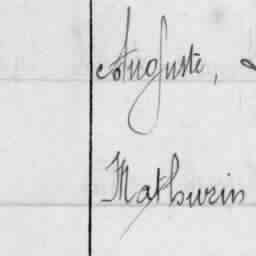 Auguste,
Mathurin